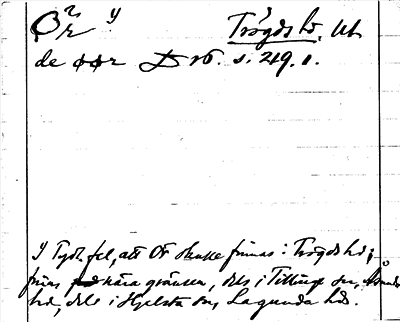 Ör 2 y Trögds hd. Upl.
de øør D V6. s. 219. 1.
y Tydl. fel, att Ör skulle finnas i Trögds hd;
finns nära gränsen, dels i Tillinge sn, Åsunda
hd, dels i Hjelsta sn, Lagunda hd.